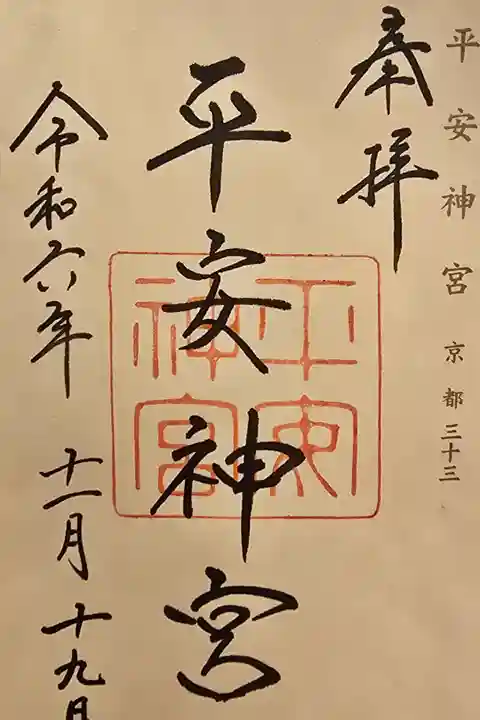 平安神宮 京都 三十三
奉拝
平安神宮
平安
神宮
令和六年 十一月 十九日